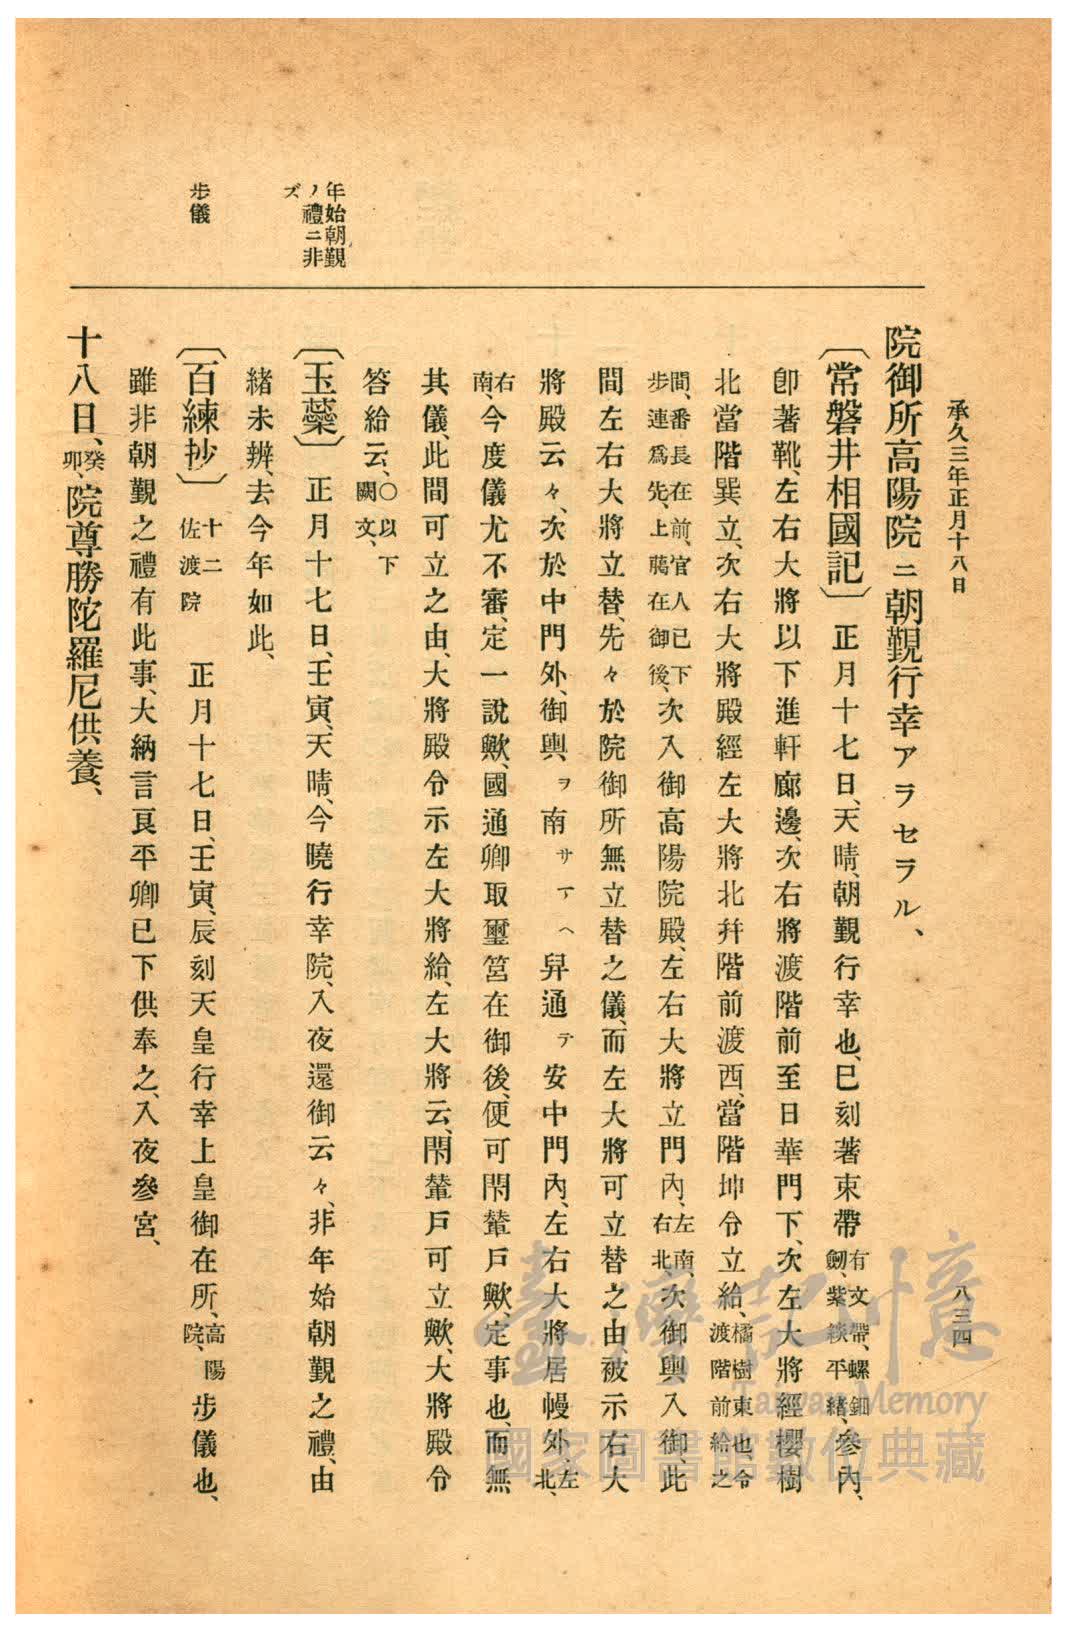 承久三年正月十八日
八三四
年始朝覲
ノ禮ニ非
ズ
步儀
院御所高陽院ニ朝覲行幸アラセラル、
〔常磐井相國記〕 正月十七日、天晴、朝覲行幸也、巳刻著束帶有文帶、螺鈿劒、紫緂平緒、參內、
卽著靴、左右大將以下進軒廊邊、次右將渡階前至日華門下、次左大將經櫻樹
北當階巽立、次右大將殿經左大將北幷階前渡西、當階坤令立給、橘樹東也、令渡階前給之
間、番長在前、官人已下步連爲先、上﨟在御後、次入御高陽院殿、左右大將立門內、左南、右北、次御輿入御、此
間左右大將立替、先々於院御所無立替之儀、而左大將可立替之由被示右大
將殿云々、次於中門外、御輿ヲ南サ丅ヘ舁通テ安中門內、左右大將居幔外、左北、
右南、今度儀尤不審、定一說歟、國通卿取璽筥在御後、便可閇輦戶歟、定事也、而無
其儀、此間可立之由、大將殿令示左大將給、左大將云、閇輦戶可立歟、大將殿令
答給云、〇以下闕文、
〔玉蘂〕 正月十七日、壬寅、天晴、今曉行幸院、入夜還御云々、非年始朝覲之禮、由
緖未辨、去今年如此、
〔百練抄〕十二佐渡院 正月十七日、壬寅、辰刻天皇行幸上皇御在所、高陽院、步儀也、
雖非朝覲之禮有此事、大納言良平卿已下供奉之、入夜參宮、
十八日、癸卯、院尊勝陀羅尼供養、
臺灣記憶
Taiwan Memory
國家圖書館數位典藏